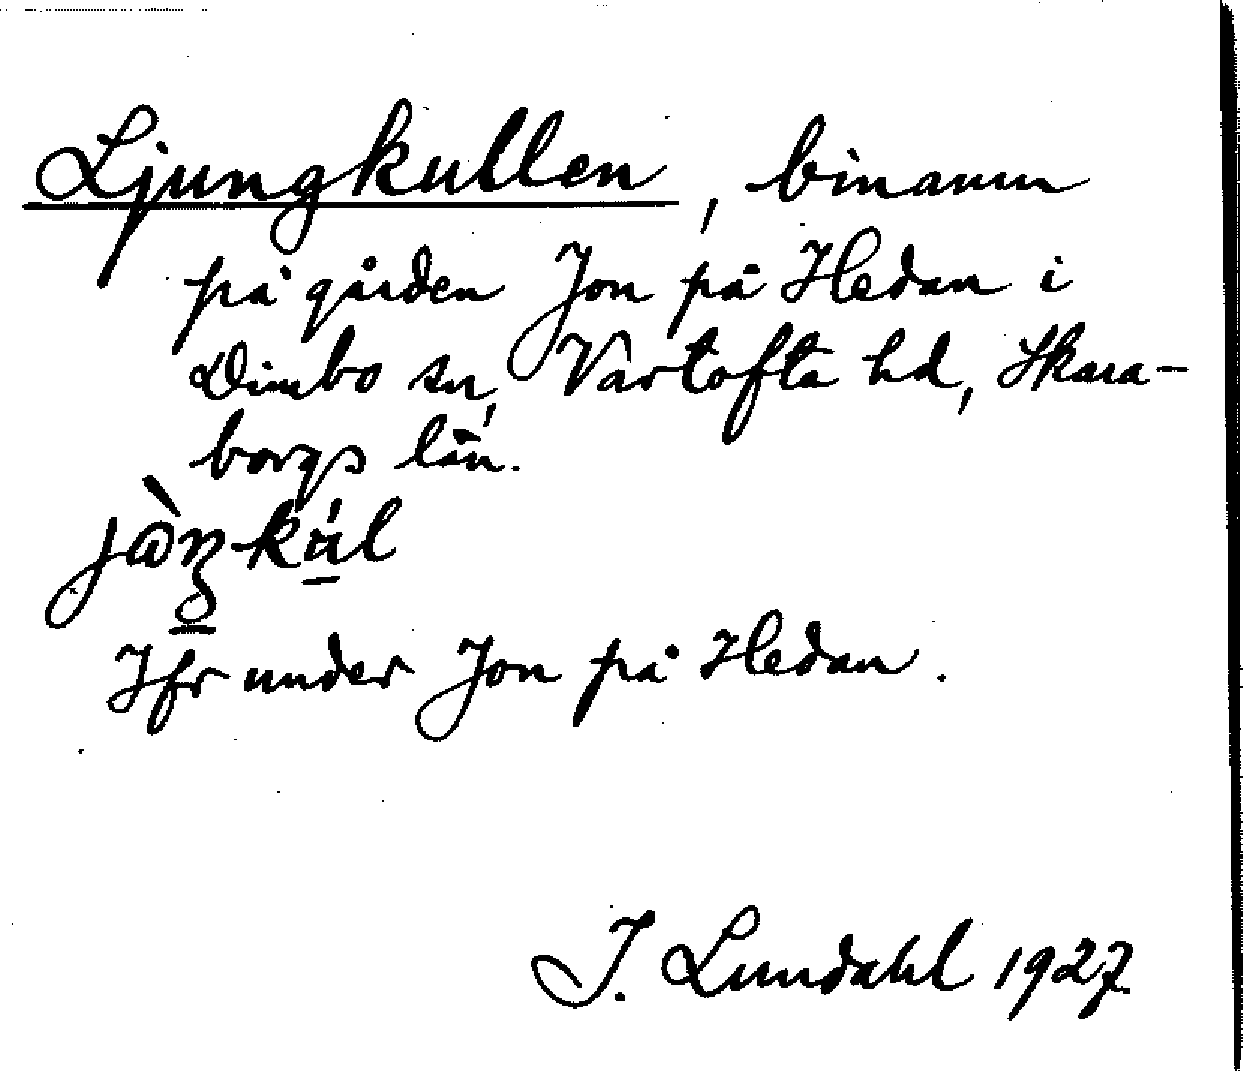 Ljungkullen, binamn
på gården Jon på Hedan i
Dimbo sn, Vartofta hd, Skara-
borgs län.
Jfr under Jon på Hedan.
I. Lundahl 1927.